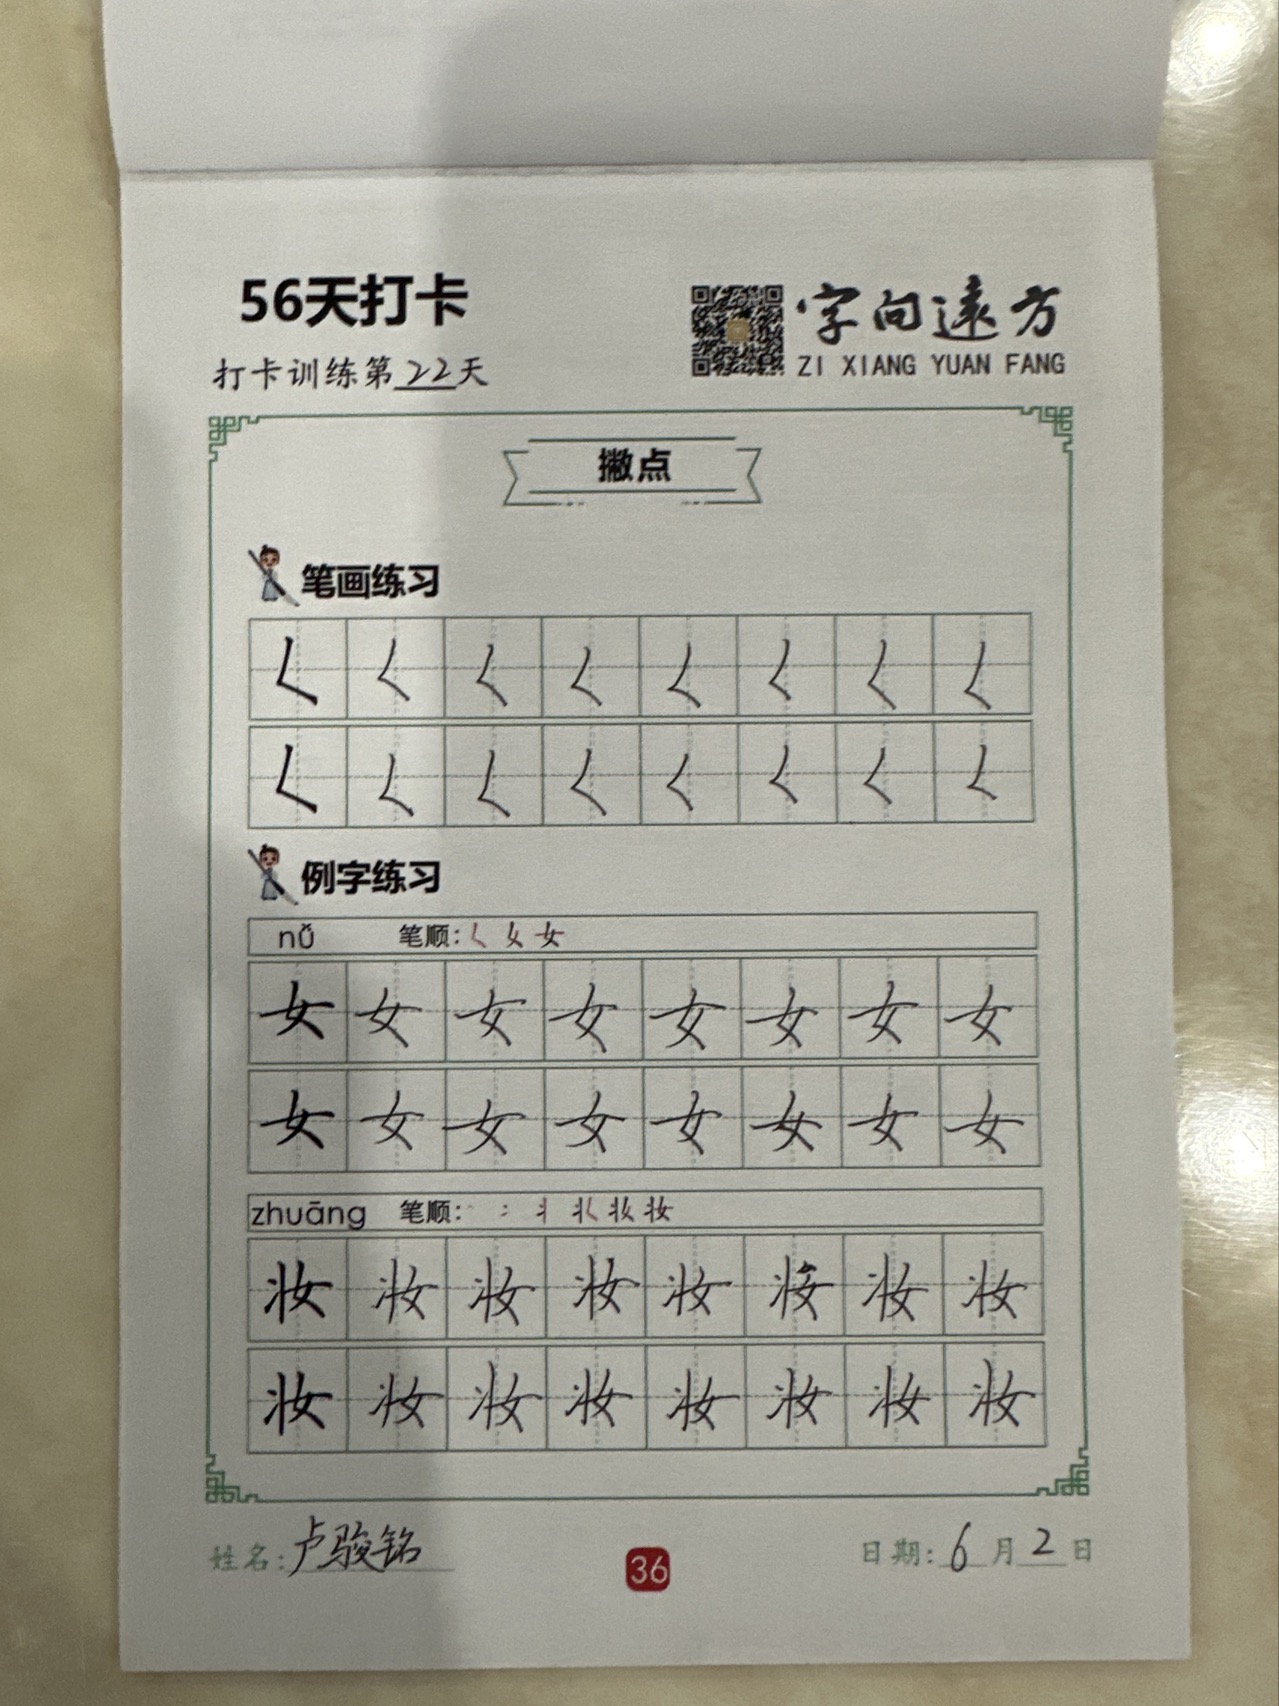 56天打卡
字向遠方
打卡训练第22天
ZI XIANG YUAN FANG
撇点
笔画练习
𡿨 𡿨 𡿨 𡿨 𡿨 𡿨 𡿨 𡿨
𡿨 𡿨 𡿨 𡿨 𡿨 𡿨 𡿨 𡿨
例字练习
nǚ 笔顺: 𡿨 女 女
女 女 女 女 女 女 女 女
女 女 女 女 女 女 女 女
zhuāng 笔顺: 丬 妆 妆
妆 妆 妆 妆 妆 妆 妆 妆
妆 妆 妆 妆 妆 妆 妆 妆
姓名: 卢骏铭 36 日期: 6月2日